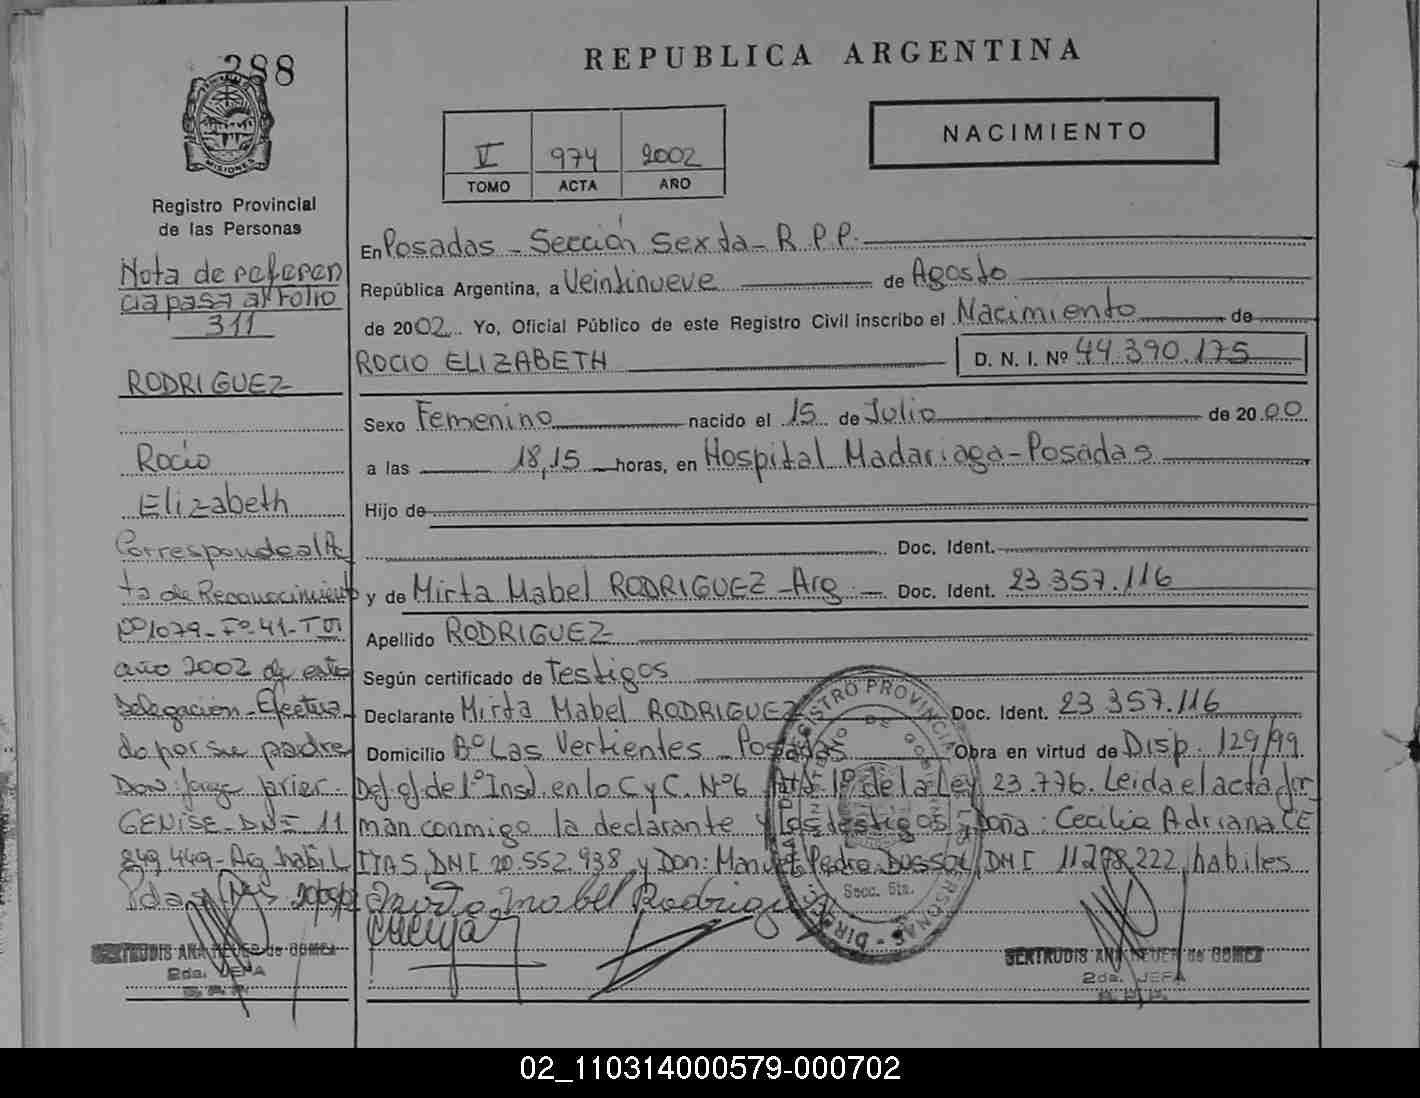 288
MISIONES
Registro Provincial
de las Personas
Nota de referen
cia pasa al Folio
311
RODRIGUEZ
Rocio
Elizabeth
Corresponde al Ac
ta de Reconocimiento
Nº 1079-Fº-41-T VI
año 2002 de esta
Delegación-Efectua
do por su padre
Don: Jorge Javier
GENISE-DNI 11
849.449-Arg. hábil
Pdas,
GERTRUDIS ANA NEUER de GOMEZ
2da. JEFA
REPUBLICA ARGENTINA
NACIMIENTO
V 974 2002
TOMO ACTA AÑO
En Posadas - Sección Sexta - R.P.P.
República Argentina, a Veintinueve de Agosto
de 2002 Yo, Oficial Público de este Registro Civil inscribo el Nacimiento de
ROCIO ELIZABETH D. N. I. Nº 44.390.175
Sexo Femenino nacido el 15 de Julio de 2000
a las 18,15 horas, en Hospital Madariaga-Posadas
Hijo de
Doc. Ident.
y de Mirta Mabel RODRIGUEZ-Arg. Doc. Ident. 23.357.116
Apellido RODRIGUEZ
Según certificado de Testigos
Declarante Mirta Mabel RODRIGUEZ Doc. Ident. 23.357.116
Domicilio Bº Las Vertientes - Posadas Obra en virtud de Disp. 129/99
Def. of. de 1º Inst. en lo C y C. Nº6 Art. 1º de la Ley 23.776. Leida el acta fir
man conmigo la declarante y los testigos Doña: Cecilia Adriana CE
ITAS, DNI 20.552.938 y Don: Manuel Pedro DUSSOL, DNI 11.278.222, habiles
Mirta Mabel Rodriguez
REGISTRO PROVINCIAL
Secc. 6ta.
GERTRUDIS ANA NEUER de GOMEZ
2da. JEFA
02_110314000579-000702